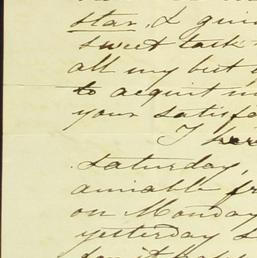 star, & gui
sweet task
all my best
to acquit m
your satisfa
I her
saturday,
amiable fr
on Monday
yesterday